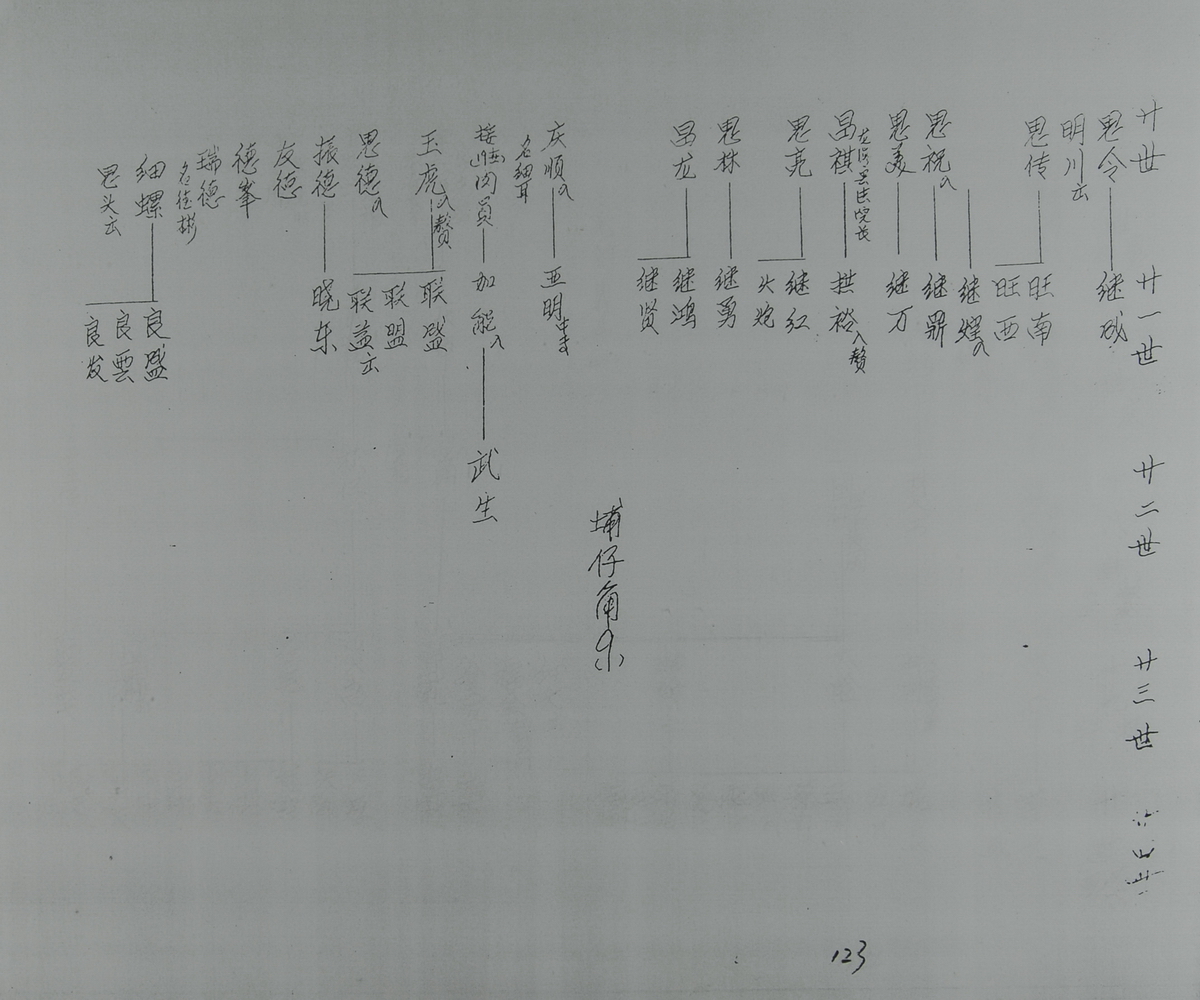 廿世
廿一世
廿二世
廿三世
思令
继成
明川
思传
旺南
旺西
继煌入
思祝入
继鼎
思美
继万
昌祺
拱裕入赘
思亮
继红
火炮
思林
继勇
昌龙
继鸿
继贤
埔仔角
庆顺入
名细耳
亚明
加能入
武生
玉虎入赘
联盛
联盟
联益
思德入
振德
晓东
友德
德峯
瑞德
名德彬
细螺
良盛
良雲
良发
思头
123